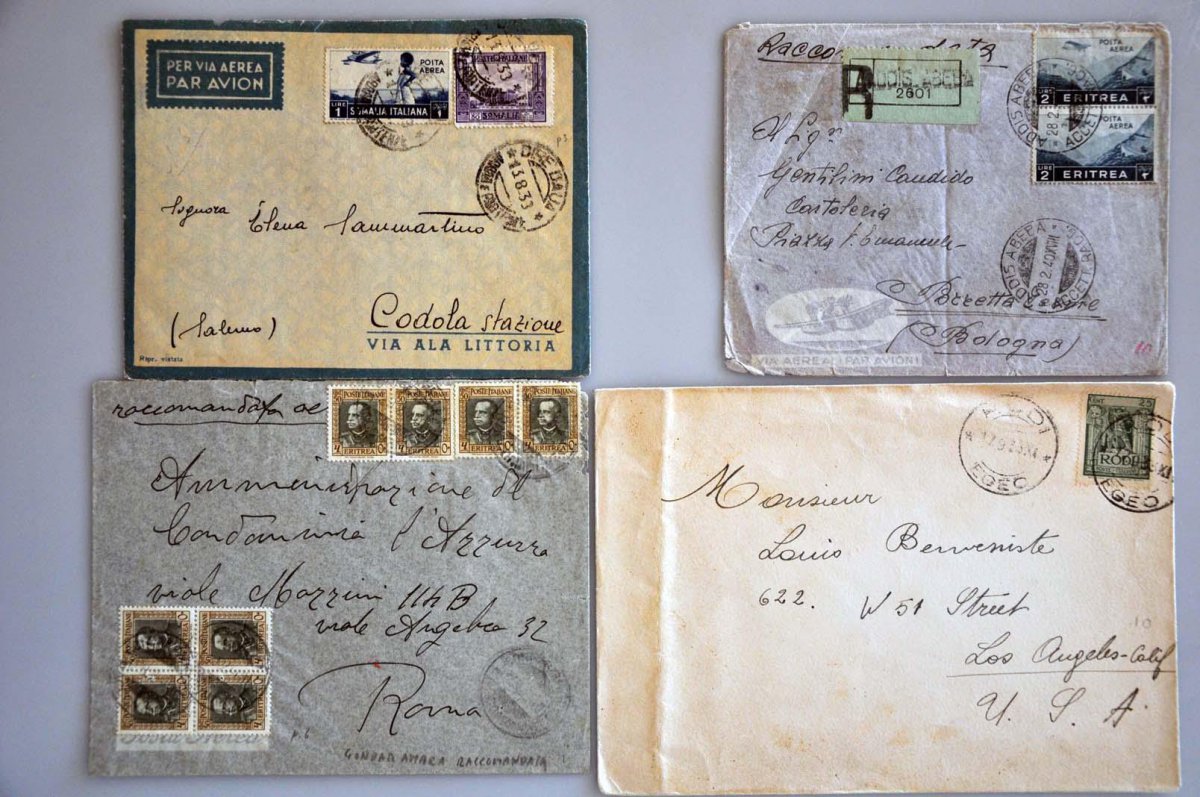 PER VIA AEREA
PAR AVION
POSTA
AEREA
LIRE
1
SOMALIA ITALIANA
1
POSTE ITALIANE
SOMALIA
DIRE DAUA
13.8.39
Signora Elena Sammartino
Codola stazione
(Salerno)
VIA ALA LITTORIA
Ripr. vietata
Raccomandata
R
ADDIS ABEBA
2601
POSTA
AEREA
LIRE
2
ERITREA
POSTA
AEREA
LIRE
2
ERITREA
ADDIS ABEBA
28.2.40
Gentilini Candido
Cartoleria
Piazza V. Emanuele
ADDIS ABEBA
28.2.40XVIII
Porretta Terme
(Bologna)
VIA AEREA (PAR AVION)
raccomandata
POSTE ITALIANE
ERITREA
Amministrazione
l'Azzurra
viale Mazzini 114B
viale Angelico 32
Roma
p. 6
GONDAR AMARA RACCOMANDATA
RODI
EGEO
CENT
25
RODI
EGEO
Monsieur
Louis Benveniste
622. W 51 Street
Los Angeles-Calif
U. S. A.
10